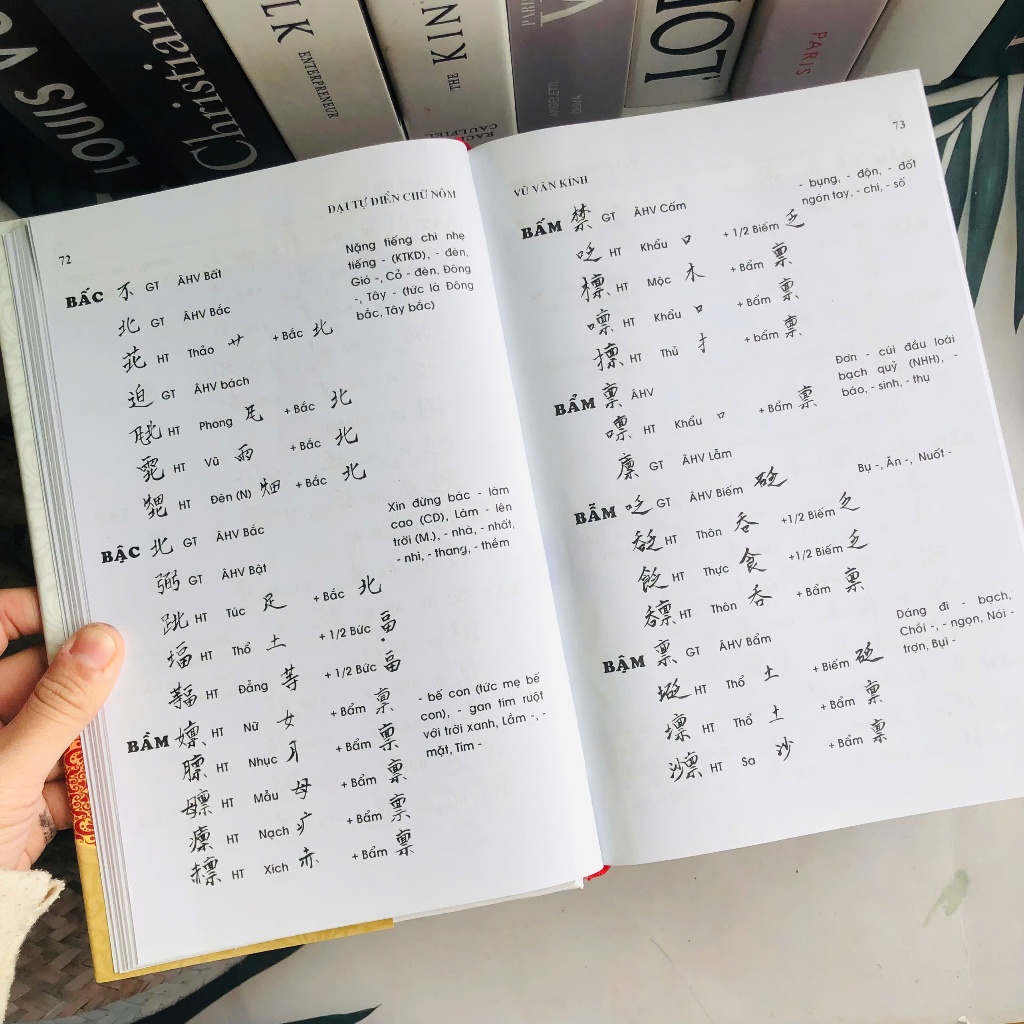 LOUIS
Christian
ENTERPRENEUR
THE
PARIS
72
ĐẠI TỰ ĐIỂN CHỮ NÔM
BẤC 不 GT ÂHV Bất
Nặng tiếng chì nhẹ
tiếng - (KTKD), - đèn,
Gió -, Cỏ - đèn, Đông
-, Tây - (tức là Đông
bắc, Tây bắc)
北 GT ÂHV Bắc
HT Thảo 艹 + Bắc 北
迫 GT ÂHV bách
HT Phong + Bắc 北
HT Vũ 雨 + Bắc 北
HT Đèn (N) 畑 + Bắc 北
BẬC 北 GT ÂHV Bắc
Xin đừng bác - làm
cao (CD), Làm - lên
trời (M.), - nhà, - nhất,
- nhì, - thang, - thềm
弼 GT ÂHV Bật
HT Túc 足 + Bắc 北
HT Thổ 土 + 1/2 Bức 畐
HT Đẳng 等 + 1/2 Bức 畐
BẦM HT Nữ 女 + Bẩm 禀
- bế con (tức mẹ bế
con), - gan tím ruột
với trời xanh, Lầm -, -
mặt, Tím -
HT Nhục 月 + Bẩm 禀
HT Mẫu 母 + Bẩm 禀
HT Nạch 疒 + Bẩm 禀
HT Xích 赤 + Bẩm 禀
73
VŨ VĂN KÍNH
BẤM 禁 GT ÂHV Cấm
- bụng, - độn, - đốt
ngón tay, - chí, - số
HT Khẩu 口 + 1/2 Biếm 乏
HT Mộc 木 + Bẩm 禀
HT Khẩu 口 + Bẩm 禀
HT Thủ 扌 + bẩm 禀
BẨM 禀 ÂHV
Đơn - cúi đầu loài
bạch quỷ (NHH), -
báo, - sinh, - thụ
HT Khẩu 口 + Bẩm 禀
GT ÂHV Lẫm
BẪM GT ÂHV Biếm 砭
Bụ -, Ăn -, Nuốt -
HT Thôn 吞 +1/2 Biếm 乏
HT Thực 食 +1/2 Biếm 乏
HT Thôn 吞 + Bẩm 禀
BẬM 禀 GT ÂHV Bẩm
Dáng đi - bạch,
Chồi -, - ngọn, Nói -
trợn, Bụi -
HT Thổ 土 + Biếm 砭
HT Thổ 土 + Bẩm 禀
HT Sa 沙 + Bẩm 禀